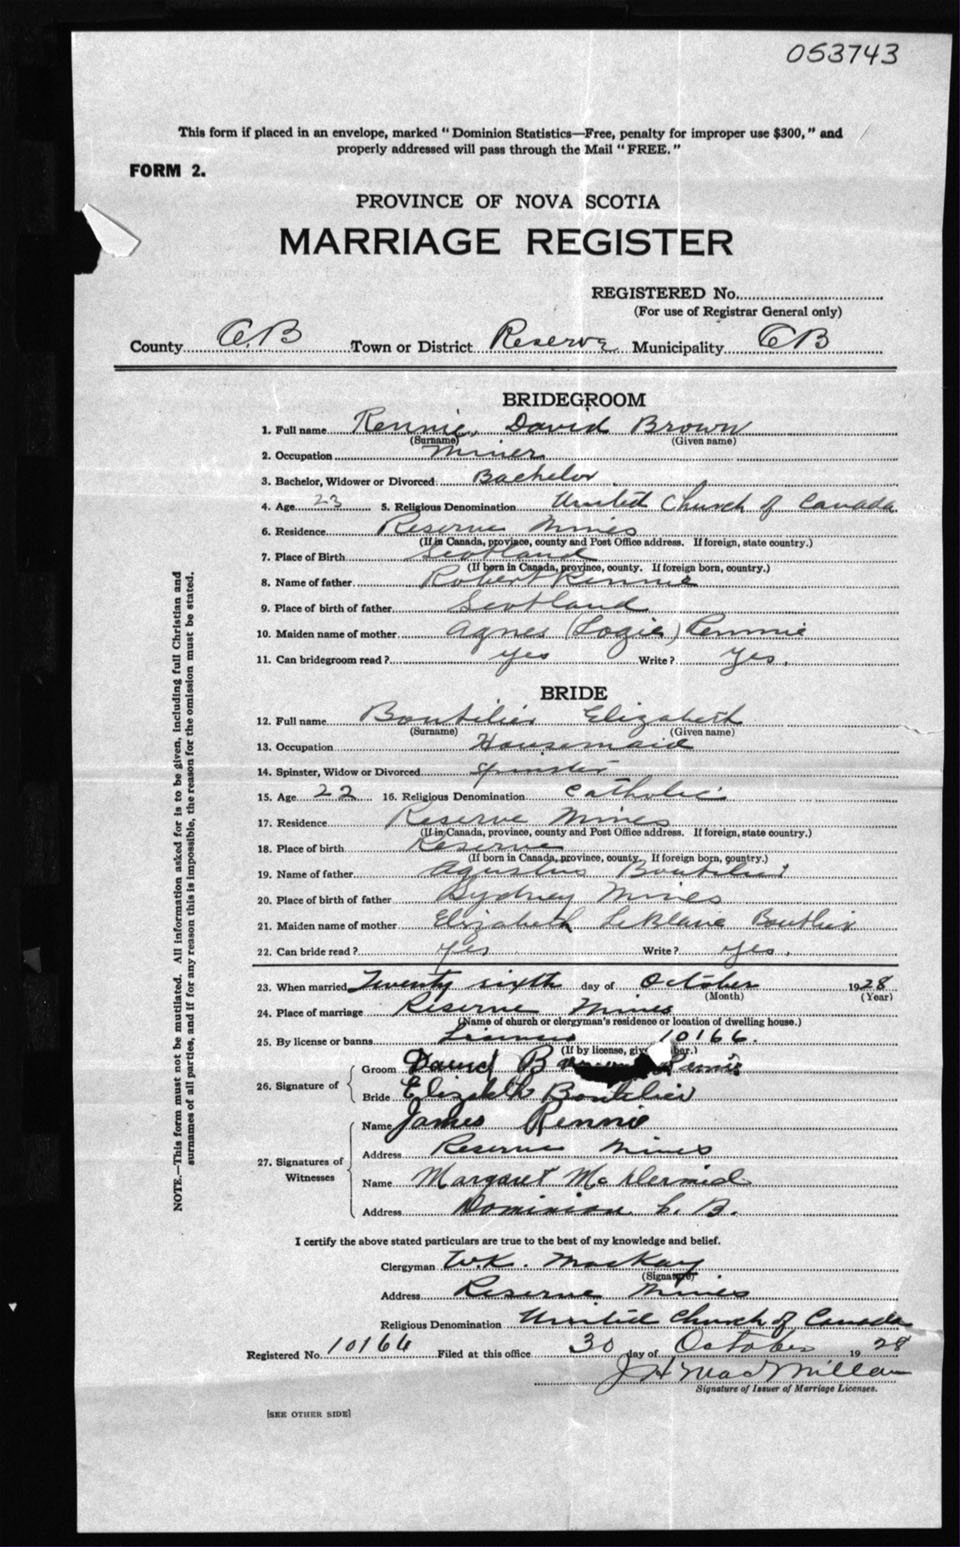 053743
This form if placed in an envelope, marked "Dominion Statistics—Free, penalty for improper use $300," and
properly addressed will pass through the Mail "FREE."
FORM 2.
PROVINCE OF NOVA SCOTIA
MARRIAGE REGISTER
REGISTERED No.
(For use of Registrar General only)
County C.B Town or District Reserve Municipality CB
BRIDEGROOM
1. Full name Rennie, David Brown
(Surname) (Given name)
2. Occupation Miner
3. Bachelor, Widower or Divorced Bachelor
4. Age 23 5. Religious Denomination United Church of Canada
6. Residence Reserve Mines
(If in Canada, province, county and Post Office address. If foreign, state country.)
7. Place of Birth Scotland
(If born in Canada, province, county. If foreign born, country.)
8. Name of father Robert Rennie
9. Place of birth of father Scotland
10. Maiden name of mother Agnes (Logie) Rennie
11. Can bridegroom read? yes Write? yes.
BRIDE
12. Full name Boutilier Elizabeth
(Surname) (Given name)
13. Occupation Housemaid
14. Spinster, Widow or Divorced Spinster
15. Age 22 16. Religious Denomination Catholic
17. Residence Reserve Mines
(If in Canada, province, county and Post Office address. If foreign, state country.)
18. Place of birth Reserve
(If born in Canada, province, county. If foreign born, country.)
19. Name of father Agustus Boutilier
20. Place of birth of father Sydney Mines
21. Maiden name of mother Elizabeth LeBlanc Boutlier
22. Can bride read? yes Write? yes.
23. When married Twenty sixth day of October 1928
(Month) (Year)
24. Place of marriage Reserve Mines
(Name of church or clergyman's residence or location of dwelling house.)
25. By license or banns License 10166.
(If by license, give ber.)
26. Signature of
Groom David B Rennie
Bride Elizabeth Boutilier
27. Signatures of Witnesses
Name James Rennie
Address Reserve Mines
Name Margaret McDermid
Address Dominion C. B.
I certify the above stated particulars are true to the best of my knowledge and belief.
Clergyman W.K. MacKay
(Signature)
Address Reserve Mines
Religious Denomination United Church of Canada
Registered No. 10166 Filed at this office 30 day of October 1928
J H MacMillan
Signature of Issuer of Marriage Licenses.
[SEE OTHER SIDE]
NOTE.—This form must not be mutilated. All information asked for is to be given, including full Christian and
surnames of all parties, and if for any reason this is impossible, the reason for the omission must be stated.